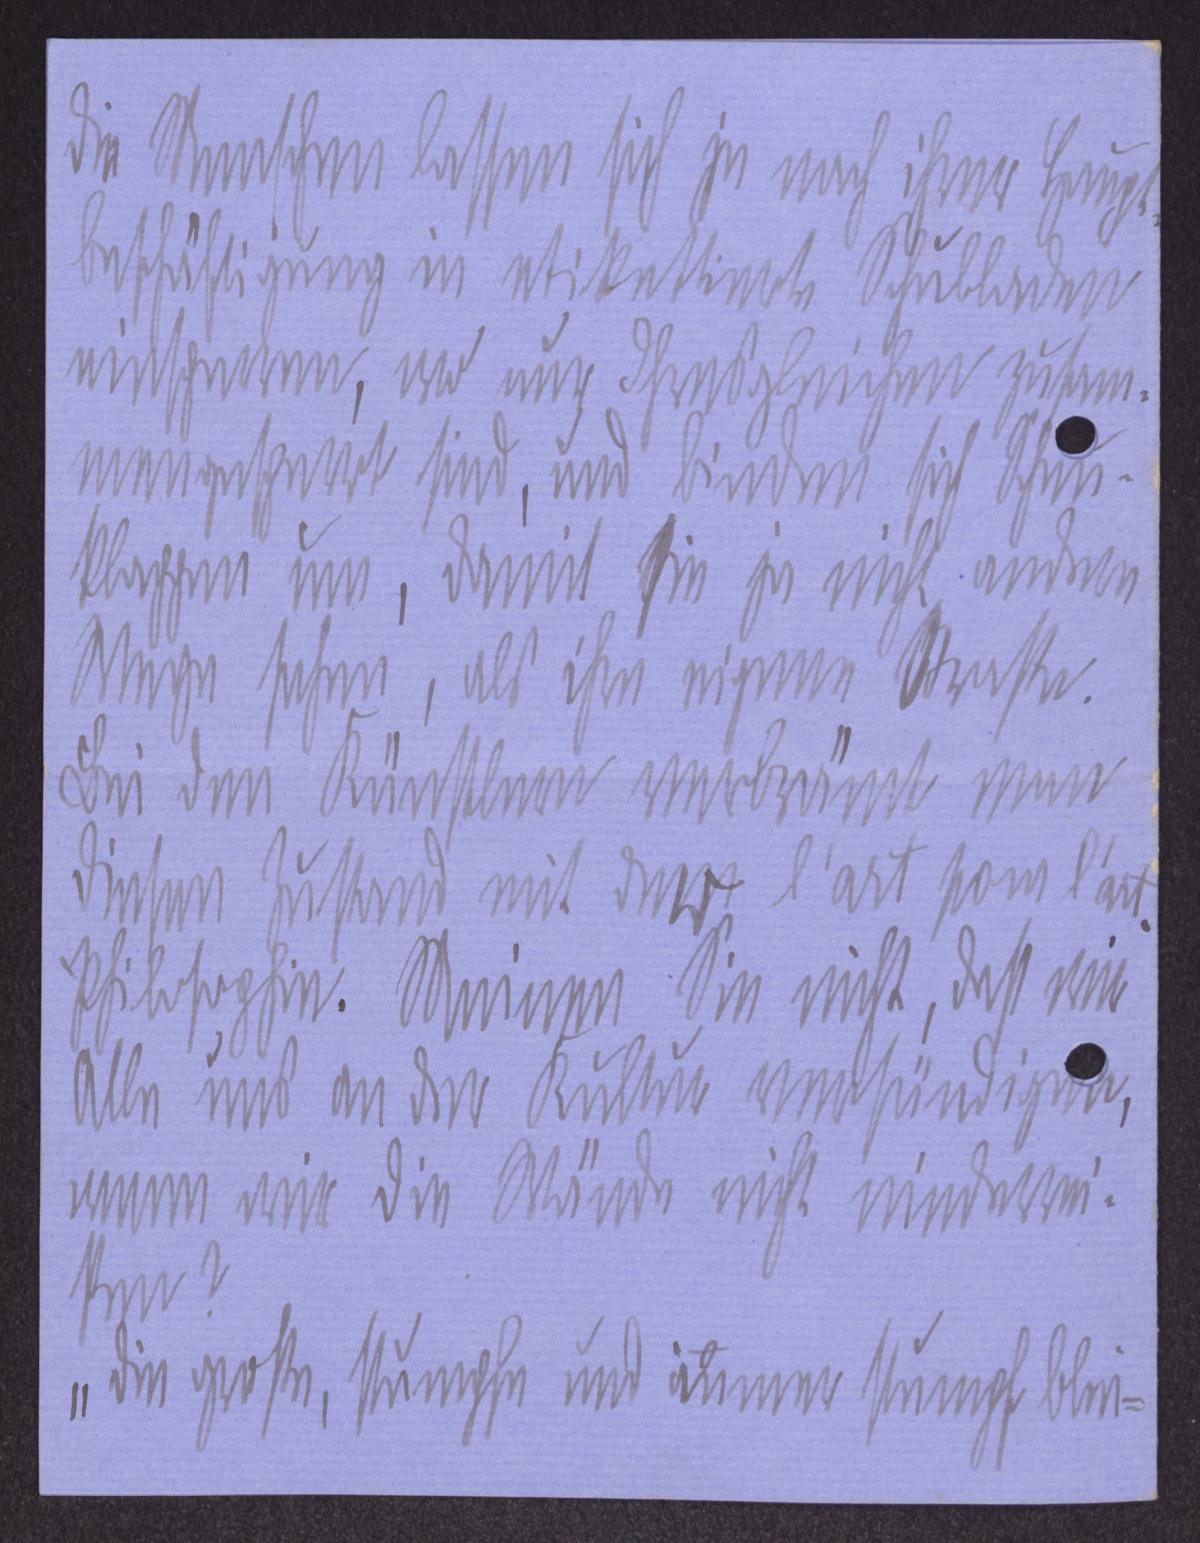 Die Menschen lassen sich je nach ihrer Haupt-
beschäftigung in etikettierte Schubladen
einsperren, wo nur Ihresgleichen zusam-
mengesperrt sind, und binden sich Scheu-
klappen um, damit sie ja nicht andere
Wege sehen, als ihre eigene Straße.
Bei den Künstlern verbrämt man
diesen Zustand mit der l'art pour l'art
Philosophie. Meinen Sie nicht, dass wir
Alle uns an der Kultur versündigen,
wenn wir die Wände nicht niederrei-
ßen?
„Die große, stumpfe und immer stumpf blei-